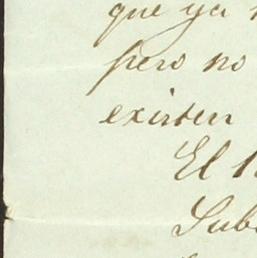 que ya
pero no
existen
El